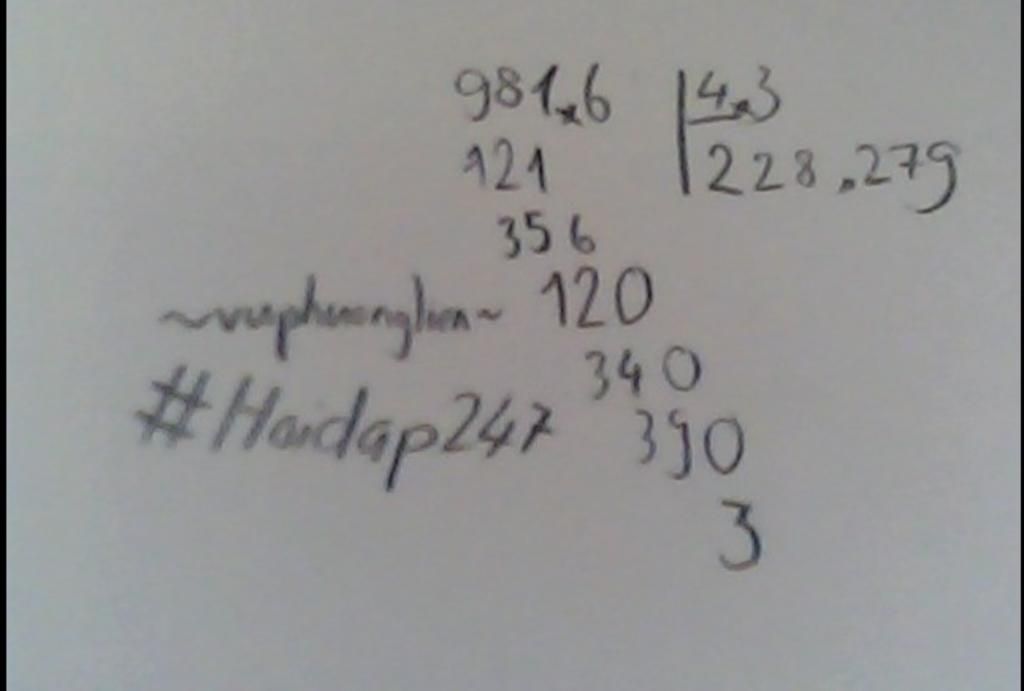 981.6 4.3
121 228.279
356
~vuphuonglinn~ 120
340
#Hoidap247 390
3